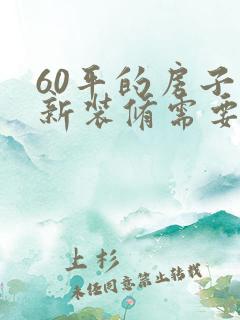 60平的房子
新装脩需要
上杉
未经同意禁止转载